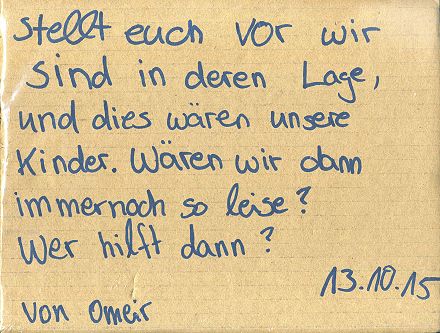 Stellt euch vor wir
sind in deren Lage,
und dies wären unsere
Kinder. Wären wir dann
immernoch so leise?
Wer hilft dann?
13.10.15
von Omeir